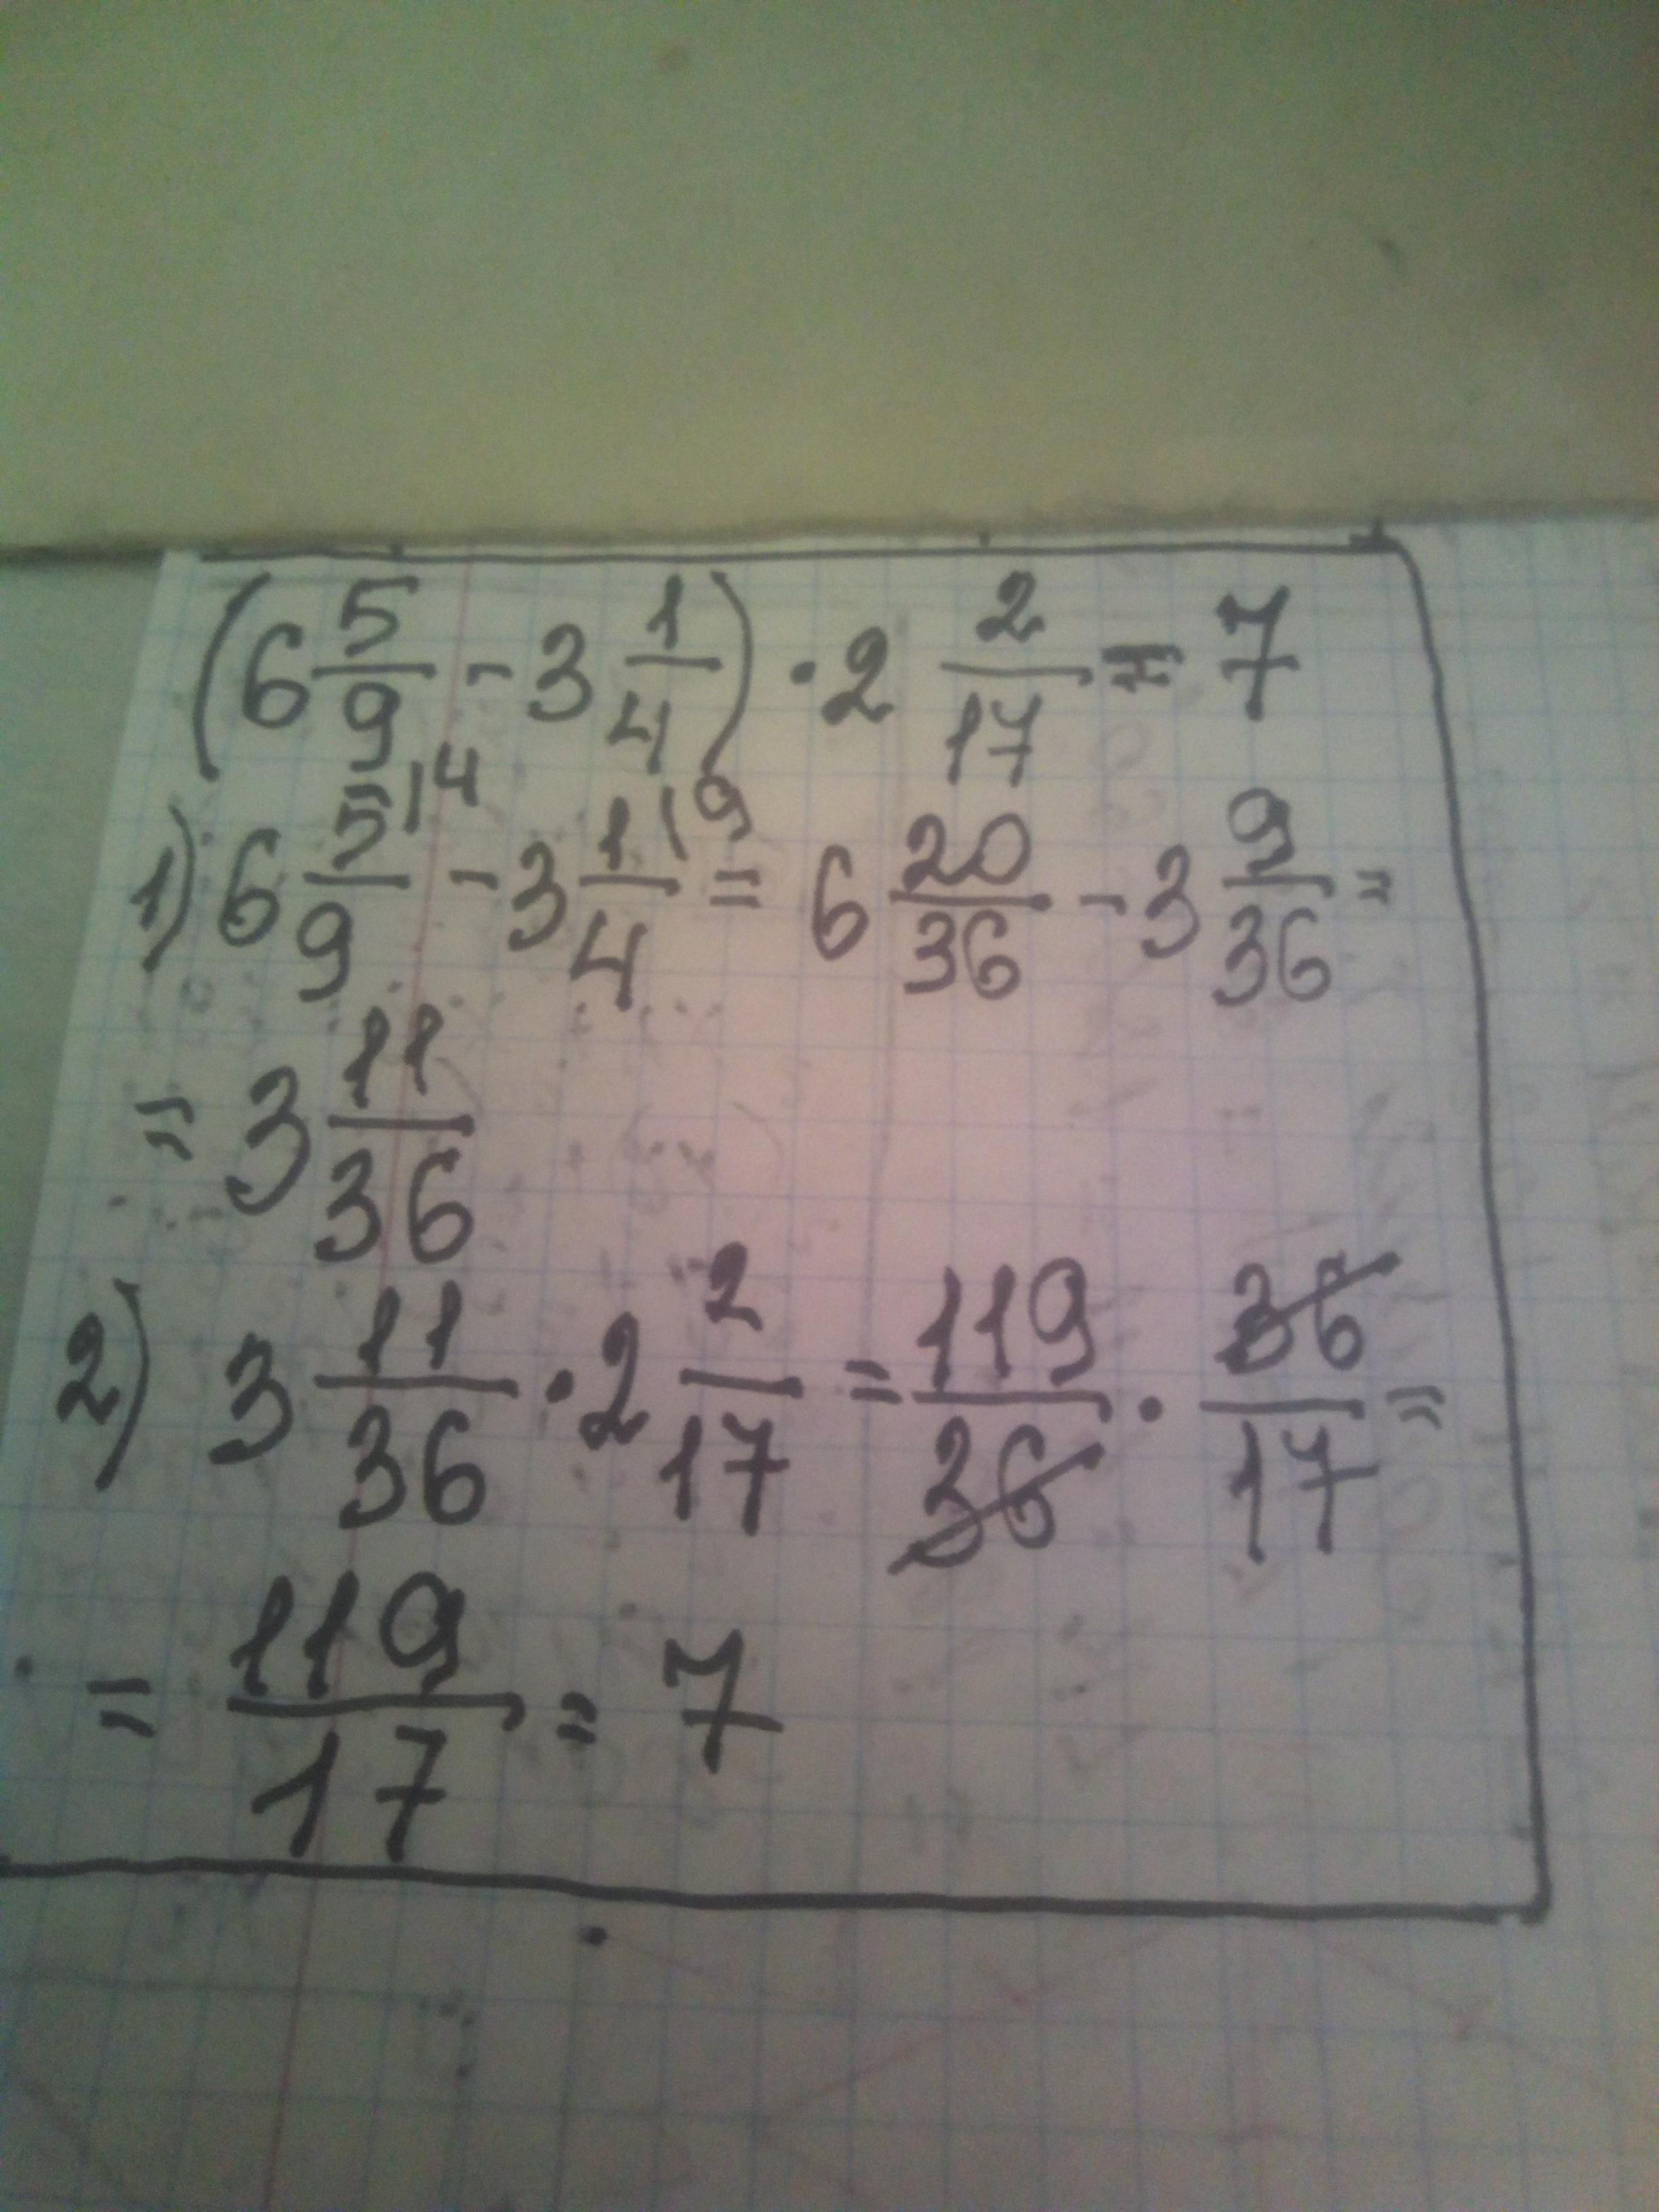 (6 5/9 - 3 1/4) · 2 2/17 = 7
1) 6 5/9 \4 - 3 1/4 \9 = 6 20/36 - 3 9/36 =
= 3 11/36
2) 3 11/36 · 2 2/17 = 119/36 · 36/17 =
= 119/17 = 7